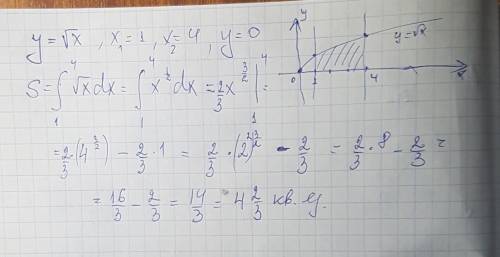 y = √x , x₁ = 1, x₂ = 4 , y = 0
S = ∫₁⁴ √x dx = ∫₁⁴ x^(1/2) dx = 2/3 x^(3/2) |₁⁴ =
= 2/3 · (4^(3/2)) − 2/3 · 1 = 2/3 · (2)^(2·3/2) − 2/3 = 2/3 · 8 − 2/3 =
= 16/3 − 2/3 = 14/3 = 4 2/3 кв. ед.
y
y = √x
0 1 4 x